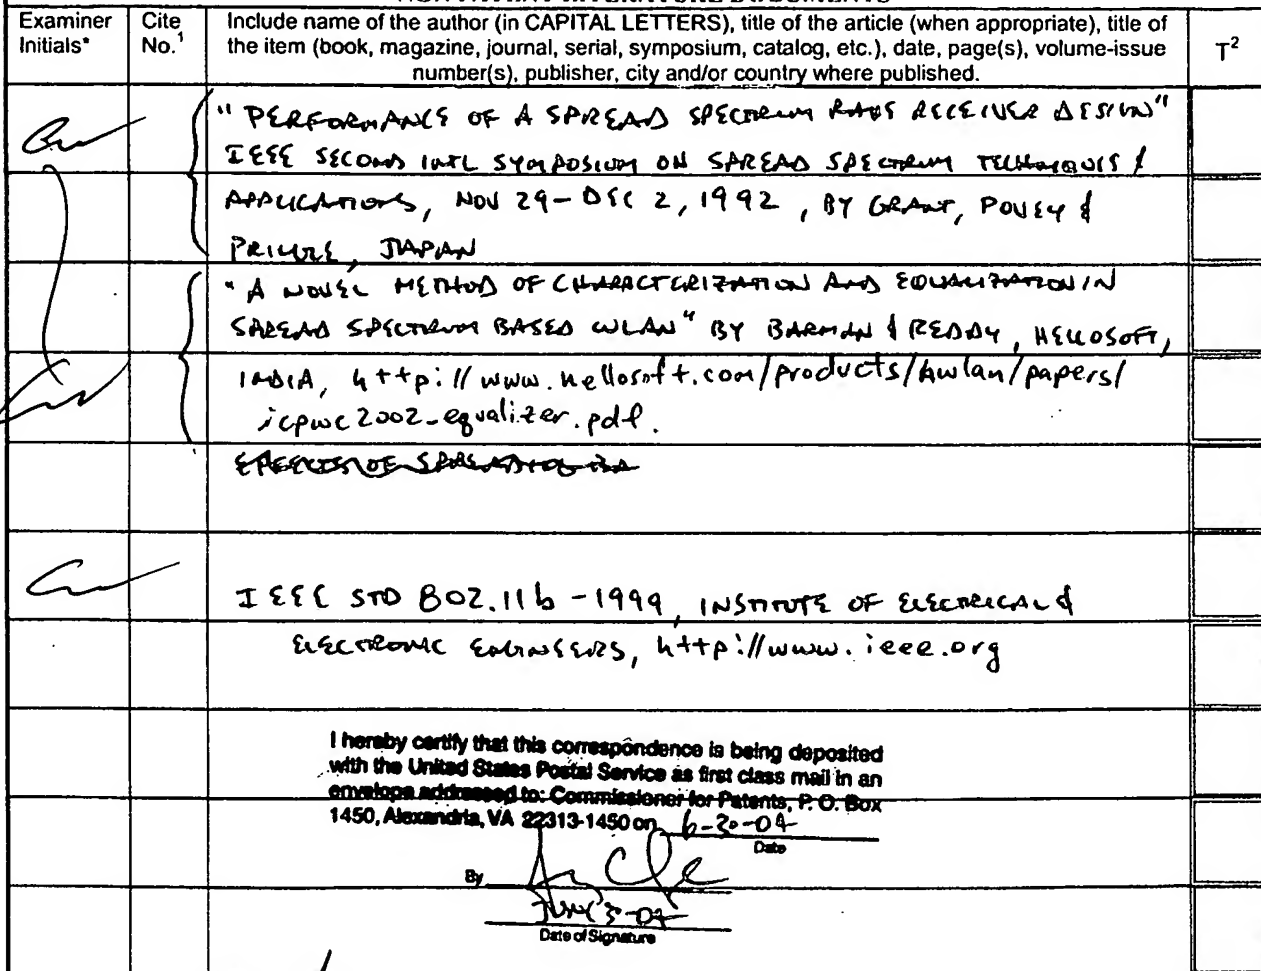 Examiner Initials*
Cite No.¹
Include name of the author (in CAPITAL LETTERS), title of the article (when appropriate), title of
the item (book, magazine, journal, serial, symposium, catalog, etc.), date, page(s), volume-issue
number(s), publisher, city and/or country where published.
T²
"PERFORMANCE OF A SPREAD SPECTRUM RAKE RECEIVER DESIGN"
IEEE SECOND INTL SYMPOSIUM ON SPREAD SPECTRUM TECHNIQUES &
APPLICATIONS, NOV 29-DEC 2, 1992, BY GRANT, POVEY &
JAPAN
"A NOVEL METHOD OF CHARACTERIZATION AND EQUALIZATION IN
SPREAD SPECTRUM BASED WLAN" BY BARMAN & REDDY, HELLOSOFT,
INDIA, http://www.hellosoft.com/products/hwlan/papers/
icpwc2002-equalizer.pdf.
EFFECTS OF
IEEE STD 802.11b-1999, INSTITUTE OF ELECTRICAL &
ELECTRONIC ENGINEERS, http://www.ieee.org
I hereby certify that this correspondence is being deposited
with the United States Postal Service as first class mail in an
envelope addressed to: Commissioner for Patents, P. O. Box
1450, Alexandria, VA 22313-1450 on 6-30-04
Date
By
Date of Signature